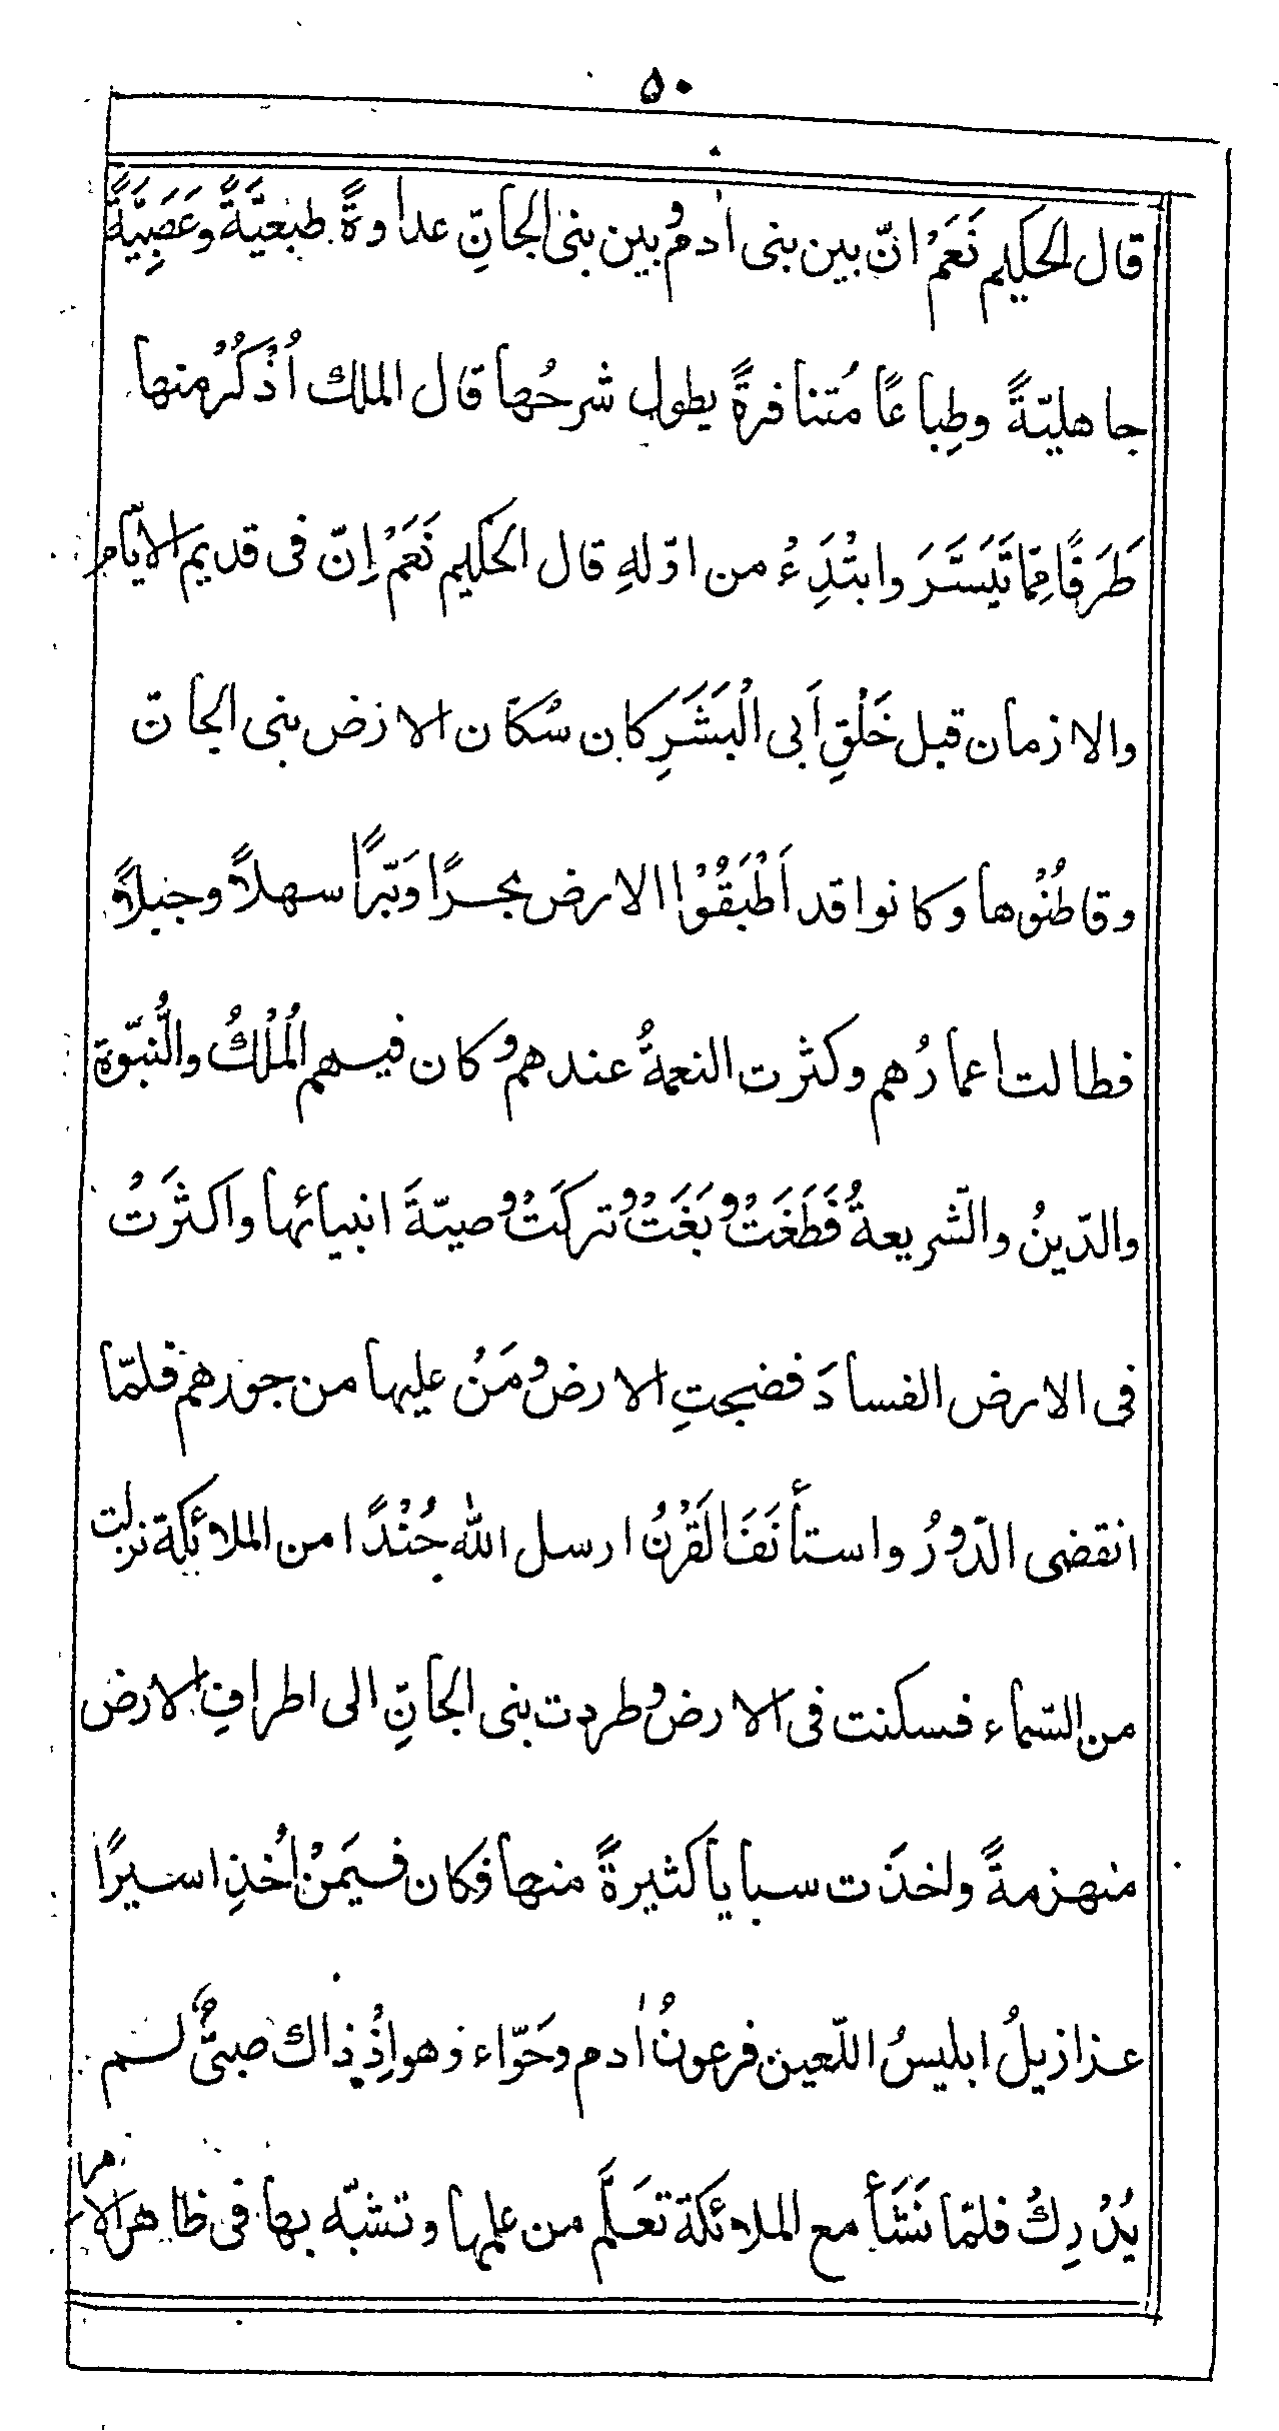 ٥٠
قال الحكيم نَعَمْ انّ بين بنى اٰدم وبين بنى الجانِّ عداوةً طبعيَّةً وعَصَبِيَّةً
جاهليّةً وطِباعًا مُتنافرةً يطول شرحُها قال الملك اُذْكُرْ منها
طَرَفًا مِمّا تَيَسَّرَ وابتْدَِءْ من اوّلهِ قال الحكيم نَعَمْ اِنّ فى قديم الايّام
والازمان قبل خَلْقِ اَبى الْبَشَرِ كان سُكّان الارض بنى الجانّ
وقاطُنُوْها وكانوا قد اَطْبَقُوْا الارض بحرًا وبَرًّا سهلاً وجبلاً
فطالت اعمارُهم وكثرت النعمةُ عندهم وكان فيهم الْمُلْكُ والنُّبّوة
والدّينُ والشّريعةُ فَطَغَتْ وبَغَتْ وتركَتْ وصيّةَ انبيائها واكثَرَتْ
فى الارض الفسادَ فضجتِ الارض ومَنْ عليها من جورهم فلمّا
انقضى الدّورُ واستأنَفَ القَرْنُ ارسل الله جُنْدًا من الملائكة نزلت
من السّماء فسكنت فى الارض وطردت بنى الجانّ الى اطرافِ الارض
منهزمةً واخذَت سبايا كثيرةً منها وكان فيمَنْ اُخذِ اسيرًا
عزازيلُ ابليسُ اللّعين فرعونُ اٰدم وحَوّاء وهو اِذْ ذاك صبىٌّ لم
يُدْرِكْ فلمّا نَشَأَ مع الملائكة تعَلَّم من علمها وتشبّه بها فى ظاهر الامر